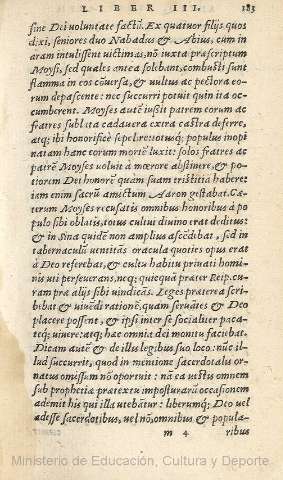 LIBER III. 183
sine Dei voluntate factū. Ex quatuor filijs quos
dixi, seniores duo Nabadus & Abius, cum in
aram intulissent victimas, nō iuxta præscriptum
Moysi, sed quales antea solebant, combusti sunt
flamma in eos cōuersa, & vultus ac pectora eo-
rum depascente: nec succurri potuit quin ita oc-
cumberent. Moyses autē iussit patrem eorum ac
fratres sublata cadauera extra castra deferre,
atq; ibi honorificè sepelire: totusq; populus inopi
natam hanc eorum mortē luxit: solos fratres ac
patrē Moyses voluit à mœrore abstinere, & po-
tiorem Dei honorē quàm suam tristitiā habere:
iam enim sacrū amictum Aaron gestabat. Cæ-
terum Moyses recusatis omnibus honoribus à po
pulo sibi oblatis, totus cultui diuino erat deditus:
& in Sina quidē non amplius ascēdebat, sed in
tabernaculū ventitās oracula quoties opus erat
à Deo referebat, & cultu habitu priuati homi-
nis vti perseuerans, neq; quicquā præter Reip. cu-
ram præ alijs sibi vindicās. Leges præterea scri-
bebat & viuēdi rationē, quam seruātes & Deo
placere possent, & ipsi inter se socialiter paca-
teq; viuere: atq; hæc omnia dei monitu faciebat.
Dicam autē & de illis legibus suo loco: nūc il-
lud succurrit, quod in mentione sacerdotalis or-
natus omissum nō oportuit: nā ea vestis omnem
sub prophetiæ prætextu imposturarū occasionem
ademit his qui illa vtebātur: liberumq; Deo vel
adesse sacerdotibus, vel nō, omnibus & popula-
m 4 ribus
Ministerio de Educación, Cultura y Deporte